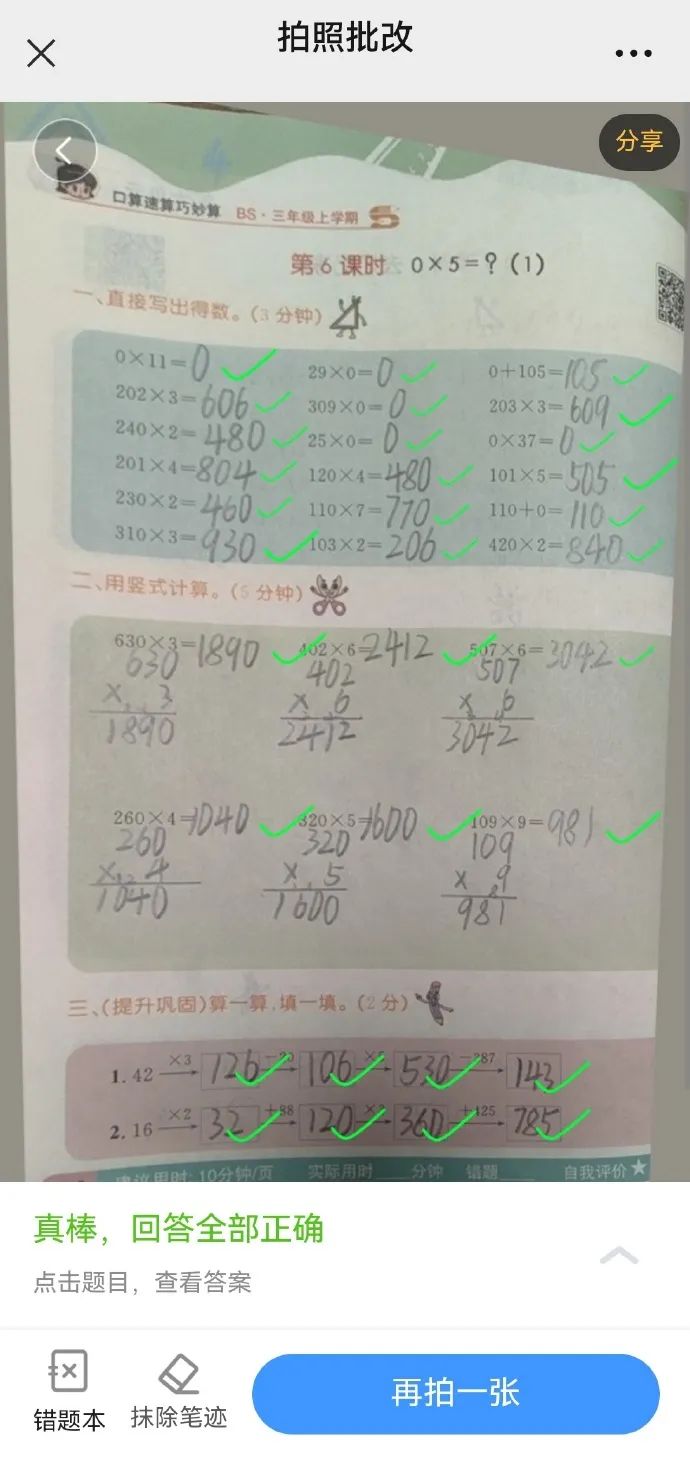 拍照批改
分享
口算速算巧妙算 BS·三年级上学期
第6课时 0×5=?(1)
一、直接写出得数。(3分钟)
0×11=0 29×0=0 0+105=105
202×3=606 309×0=0 203×3=609
240×2=480 25×0=0 0×37=0
201×4=804 120×4=480 101×5=505
230×2=460 110×7=770 110+0=110
310×3=930 103×2=206 420×2=840
二、用竖式计算。(5分钟)
630×3=1890 402×6=2412 507×6=3042
630 402 507
× 3 × 6 × 6
1890 2412 3042
260×4=1040 320×5=1600 109×9=981
260 320 109
× 4 × 5 × 9
1040 1600 981
三、(提升巩固)算一算,填一填。(2分)
×3 -387
1.42 126 106 530 143
×2 +88 +425
2.16 32 120 360 785
建议用时:10分钟/页 实际用时 分钟 错题 自我评价
真棒，回答全部正确
点击题目，查看答案
错题本 抹除笔迹 再拍一张